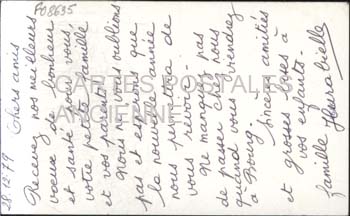 F08635
28.12.79
Chers amis
Recevez nos meilleurs
voeux de bonheur
et santé pour vous,
votre petite famille
et vos parents.
Nous ne vous oublions
pas et espérons que
la nouvelle année
nous permettra de
vous revoir.
Ne manquez pas
de passer chez nous
quand vous viendrez
à Bourg.
Sincères amitiés
et grosses bises à
vos enfants.
famille
CARTES POSTALES
ANCIENNES